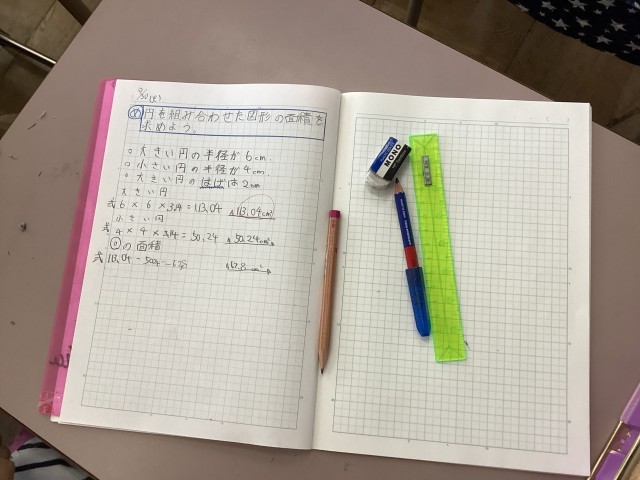 9/30(火)
め 円を組み合わせた図形の面積を
求めよう。
○大きい円の半径が6cm
○小さい円の半径が4cm
○大きい円のはばは2cm
大きい円
式6×6×3.14=113.04 A113.04cm²
小さい円
式4×4×3.14=50.24 A50.24cm²
◎の面積
式113.04-50.24=
MONO